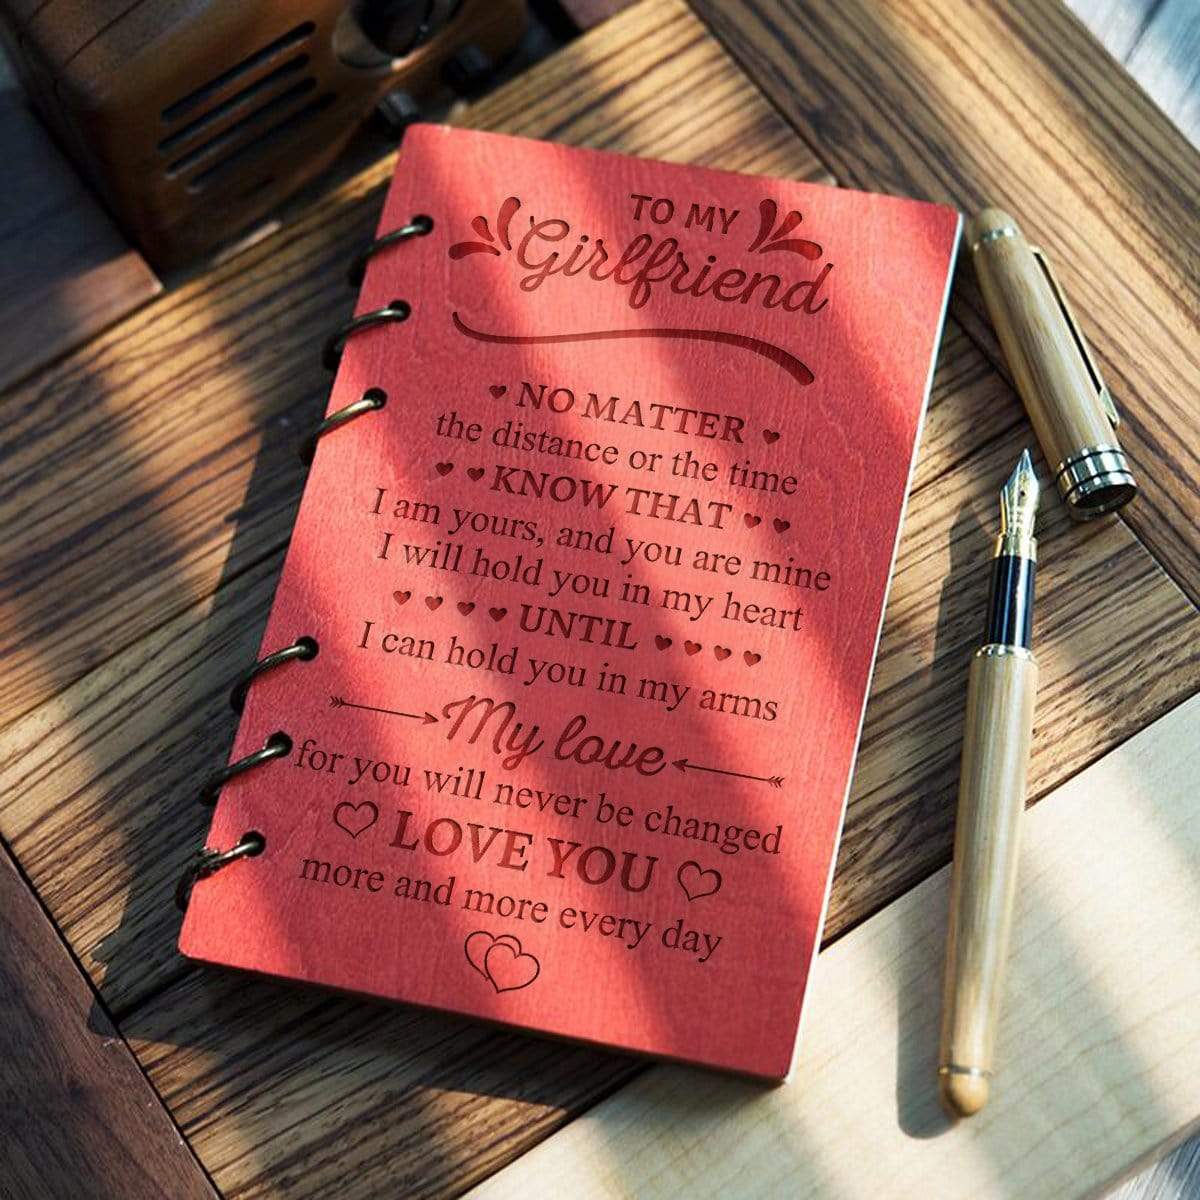 TO MY
Girlfriend
NO MATTER
the distance or the time
KNOW THAT
I am yours, and you are mine
I will hold you in my heart
UNTIL
I can hold you in my arms
My love
for you will never be changed
LOVE YOU
more and more every day